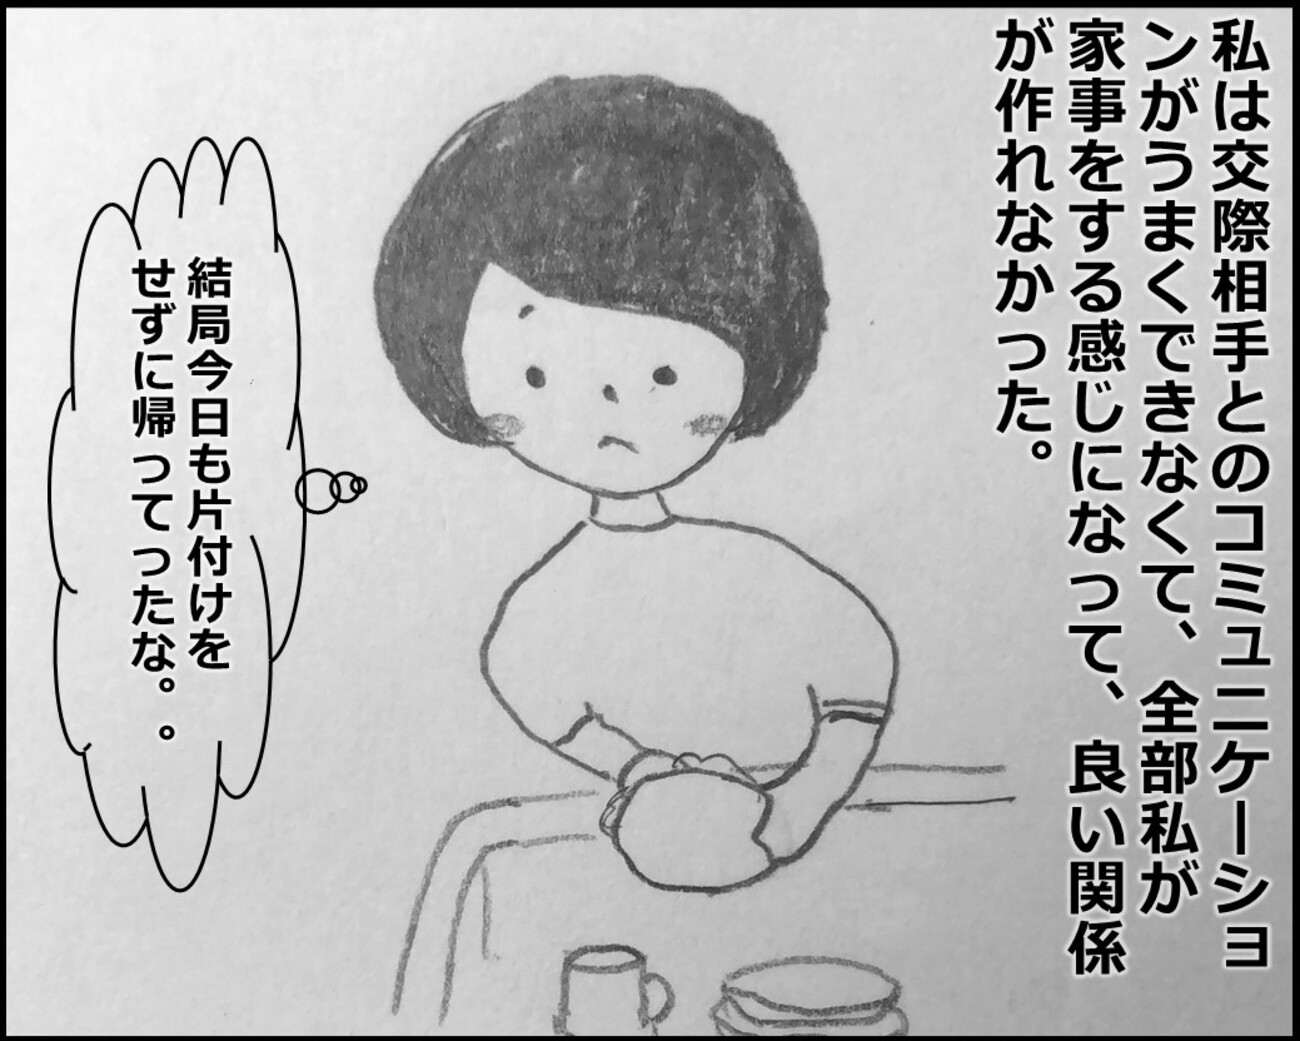 私は交際相手とのコミュニケーショ
ンがうまくできなくて、全部私が
家事をする感じになって、良い関係
が作れなかった。
結局今日も片付けを
せずに帰ってったな。。